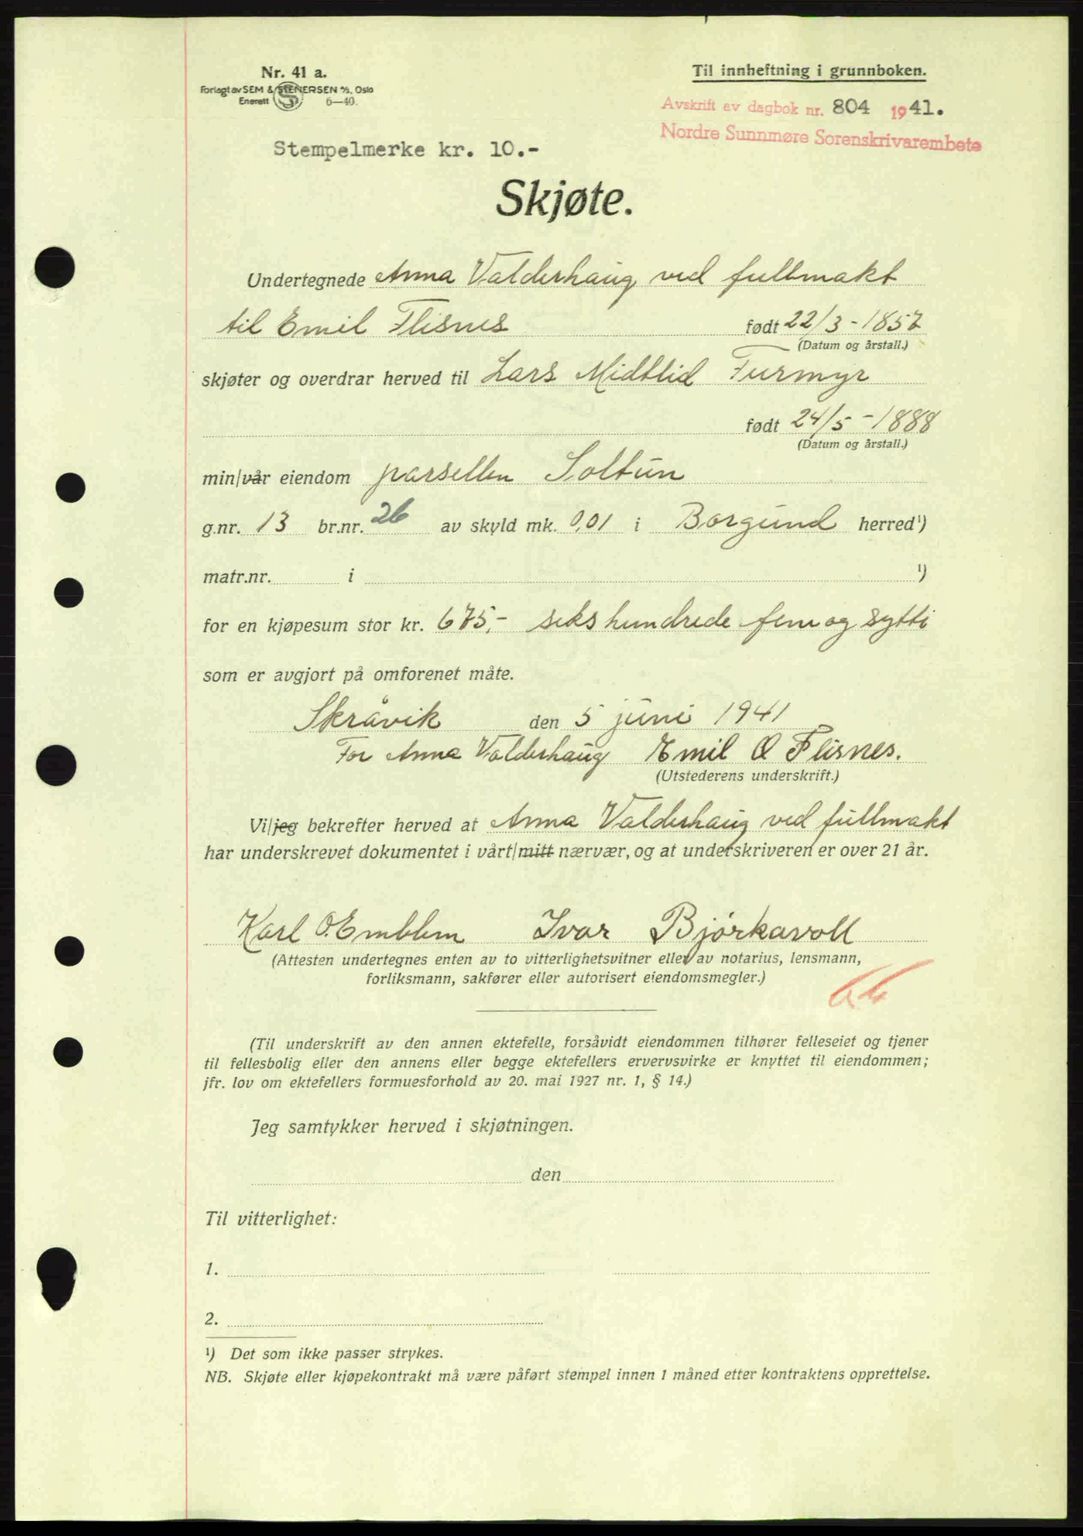 Nr. 41 a.
Forlagt av SEM & STENERSEN A/S, Oslo
Enerett 6—40.
Til innheftning i grunnboken.
Avskrift av dagbok nr. 804 1941.
Nordre Sunnmøre Sorenskrivarembete
Stempelmerke kr. 10.-
Skjøte.
Undertegnede Anna Valderhaug ved fullmakt
til Emil Flisnes født 22/3-1857
(Datum og årstall.)
skjøter og overdrar herved til Lars Midtlid Furmyr
født 24/5-1888
(Datum og årstall.)
min/vår eiendom parsellen Soltun
g.nr. 13 br.nr. 26 av skyld mk. 0,01 i Borgund herred¹)
matr.nr. i ¹)
for en kjøpesum stor kr. 675,- seks hundrede fem og sytti
som er avgjort på omforenet måte.
Skråvik den 5 juni 1941
For Anna Valderhaug Emil O Flisnes.
(Utstederens underskrift.)
Vi/jeg bekrefter herved at Anna Valderhaug ved fullmakt
har underskrevet dokumentet i vårt/mitt nærvær, og at underskriveren er over 21 år.
Karl O. Emblem Ivar Bjørkavoll
(Attesten undertegnes enten av to vitterlighetsvitner eller av notarius, lensmann,
forliksmann, sakfører eller autorisert eiendomsmegler.)
(Til underskrift av den annen ektefelle, forsåvidt eiendommen tilhører felleseiet og tjener
til fellesbolig eller den annens eller begge ektefellers ervervsvirke er knyttet til eiendommen;
jfr. lov om ektefellers formuesforhold av 20. mai 1927 nr. 1, § 14.)
Jeg samtykker herved i skjøtningen.
den
Til vitterlighet:
1.
2.
¹) Det som ikke passer strykes.
NB. Skjøte eller kjøpekontrakt må være påført stempel innen 1 måned etter kontraktens opprettelse.